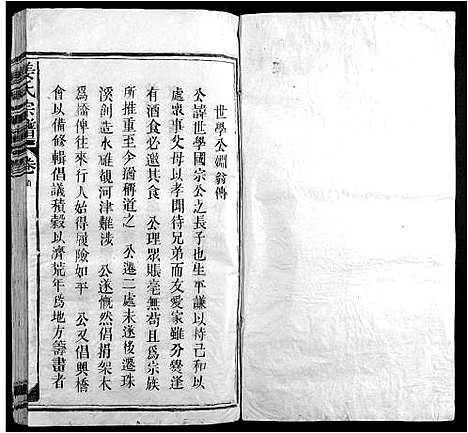 世學公嫻翁傳
公諱世學國宗公之長子也生平謙以持己和以
處衆事父母以孝聞待兄弟而友愛家雖分爨逢
有酒食必邀其食 公理眾賬毫無苟且為宗族
所推重至今猶稱道之 公遷二處未遂後遷珠
溪創造水碓硯河津難涉 公遂慨然倡捐架木
爲橋俾往來行人始得履險如平 公又倡興橋
會以備修輯倡議積穀以濟荒年為地方籌畫者
姜氏宗譜
卷首